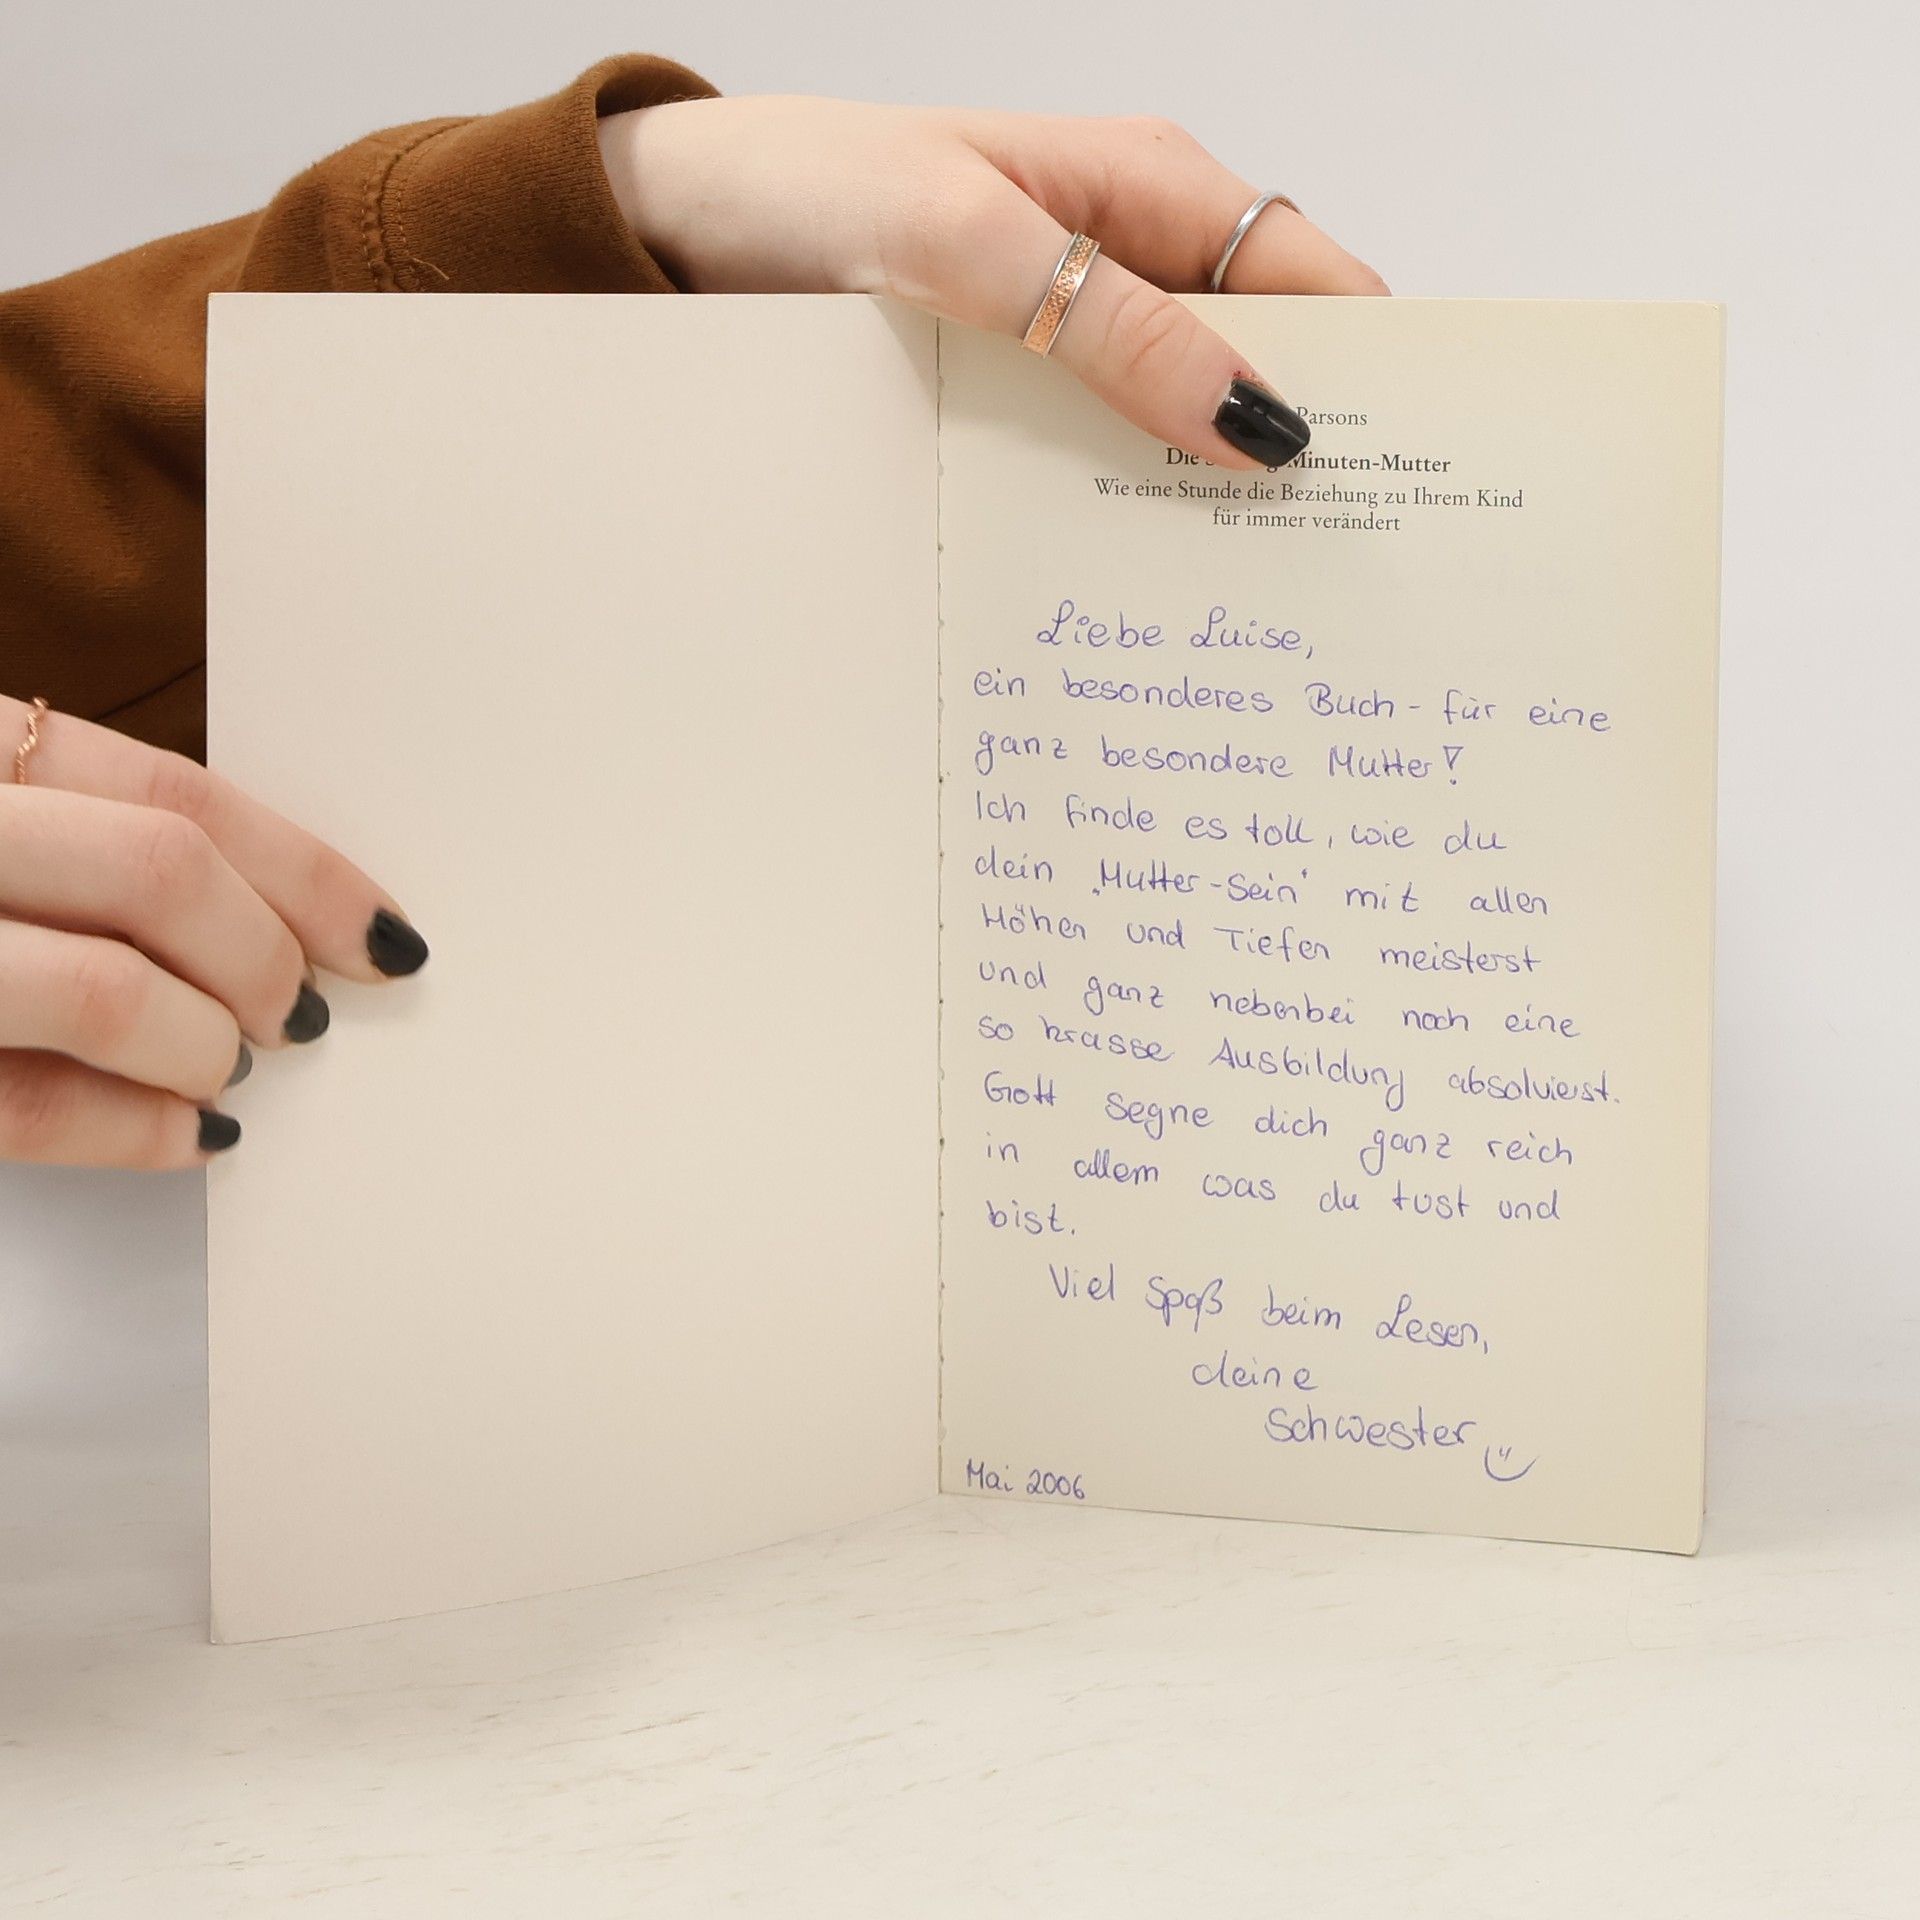 Parsons
Die Minuten-Mutter
Wie eine Stunde die Beziehung zu Ihrem Kind
für immer verändert
Liebe Luise,
ein besonderes Buch - für eine
ganz besondere Mutter!
Ich finde es toll, wie du
dein ‚Mutter-Sein' mit allen
Höhen und Tiefen meisterst
und ganz nebenbei noch eine
so krasse Ausbildung absolvierst.
Gott segne dich ganz reich
in allem was du tust und
bist.
Viel Spaß beim Lesen,
deine
Schwester
Mai 2006